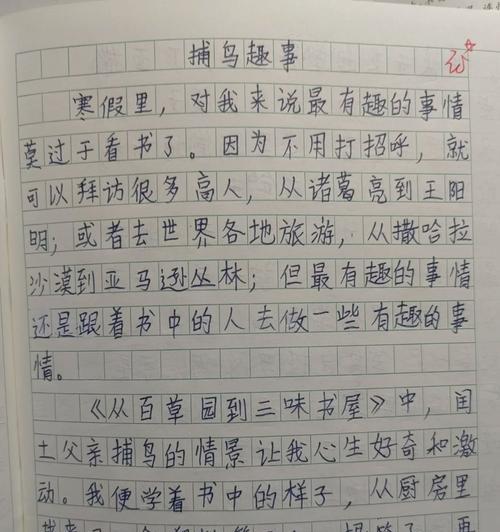 捕鸟趣事
寒假里，对我来说最有趣的事情
莫过于看书了。因为不用打招呼，就
可以拜访很多高人，从诸葛亮到王阳
明；或者去世界各地旅游，从撒哈拉
沙漠到亚马逊丛林；但最有趣的事情
还是跟着书中的人去做一些有趣的事
情。
《从百草园到三味书屋》中，闰
土父亲捕鸟的情景让我心生好奇和激
动。我便学着书中的样子，从厨房里